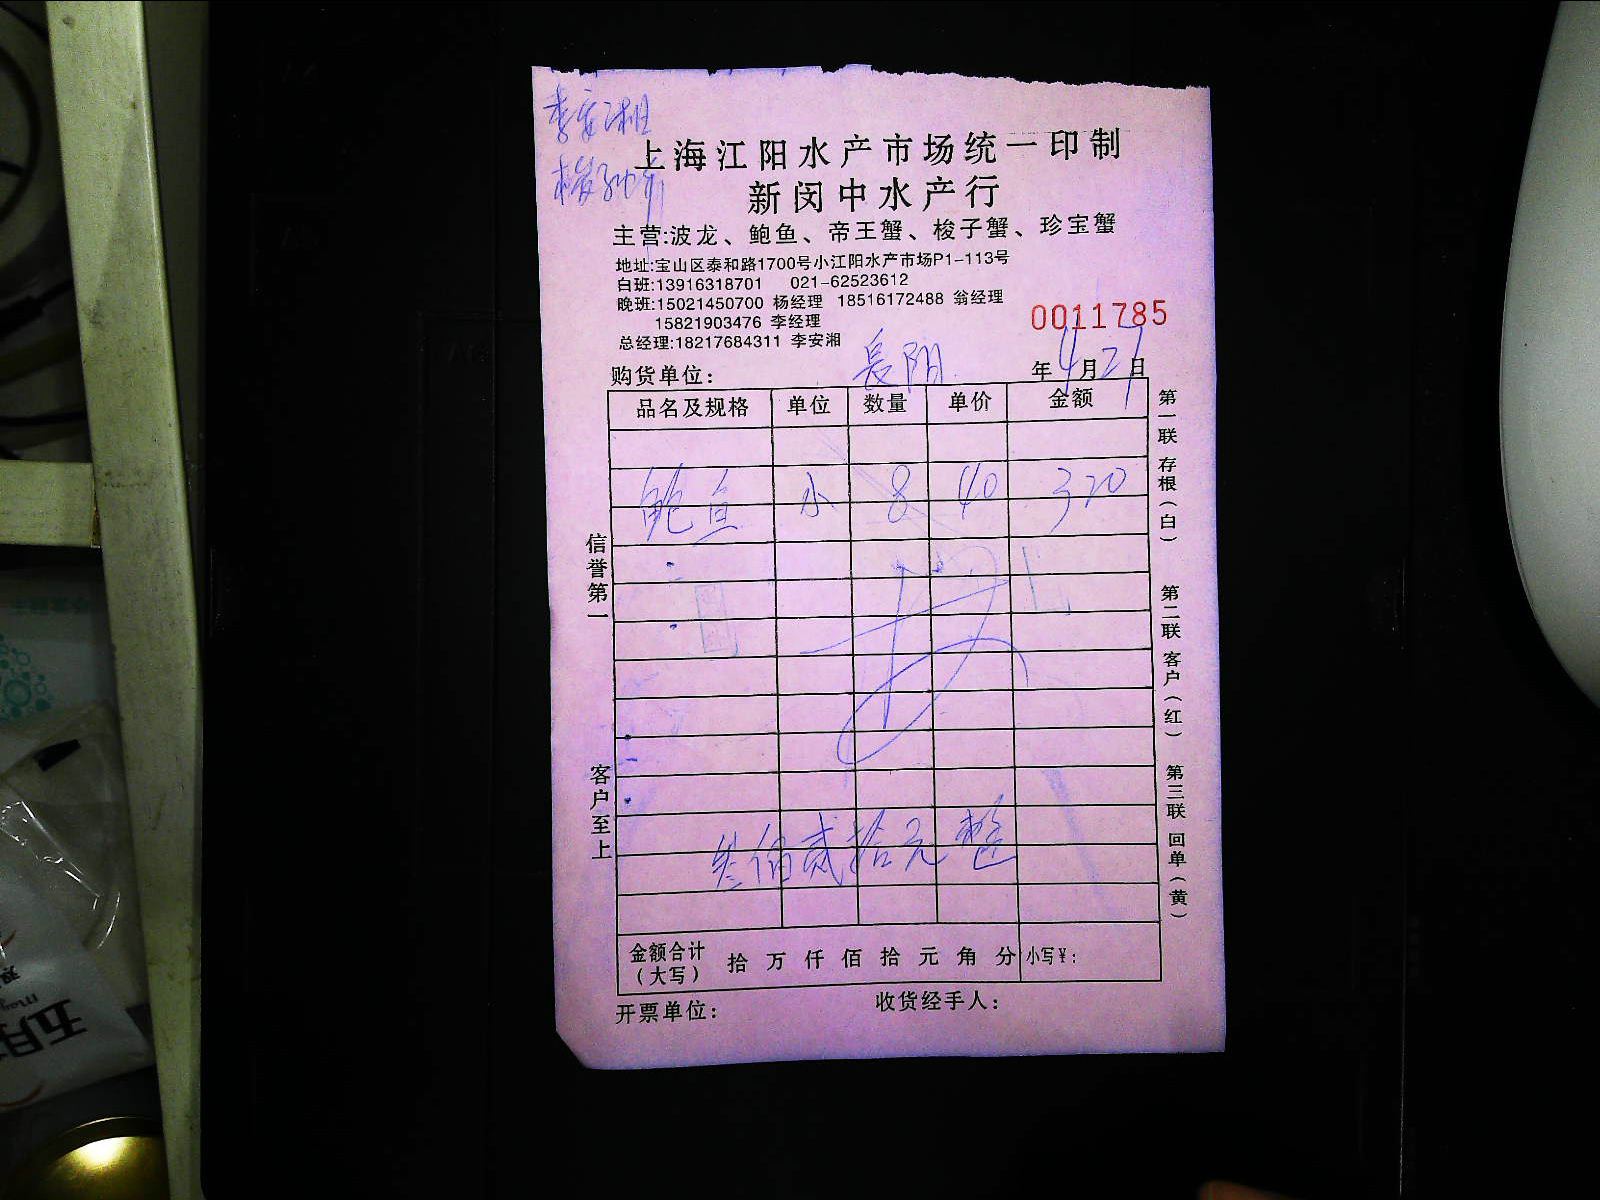 李安湘
上海江阳水产市场统一印制
新闵中水产行
主营:波龙、鲍鱼、帝王蟹、梭子蟹、珍宝蟹
地址:宝山区泰和路1700号小江阳水产市场P1-113号
白班:13916318701 021-62523612
晚班:15021450700 杨经理 18516172488 翁经理
15821903476 李经理
总经理:18217684311 李安湘
0011785
购货单位: 長阴 年4月27日
品名及规格 单位 数量 单价 金额
鲍鱼 小 8 40 320
叁佰贰拾元整
金额合计(大写) 拾 万 仟 佰 拾 元 角 分 小写¥:
开票单位: 收货经手人:
信誉第一
客户至上
第一联 存根(白)
第二联 客户(红)
第三联 回单(黄)